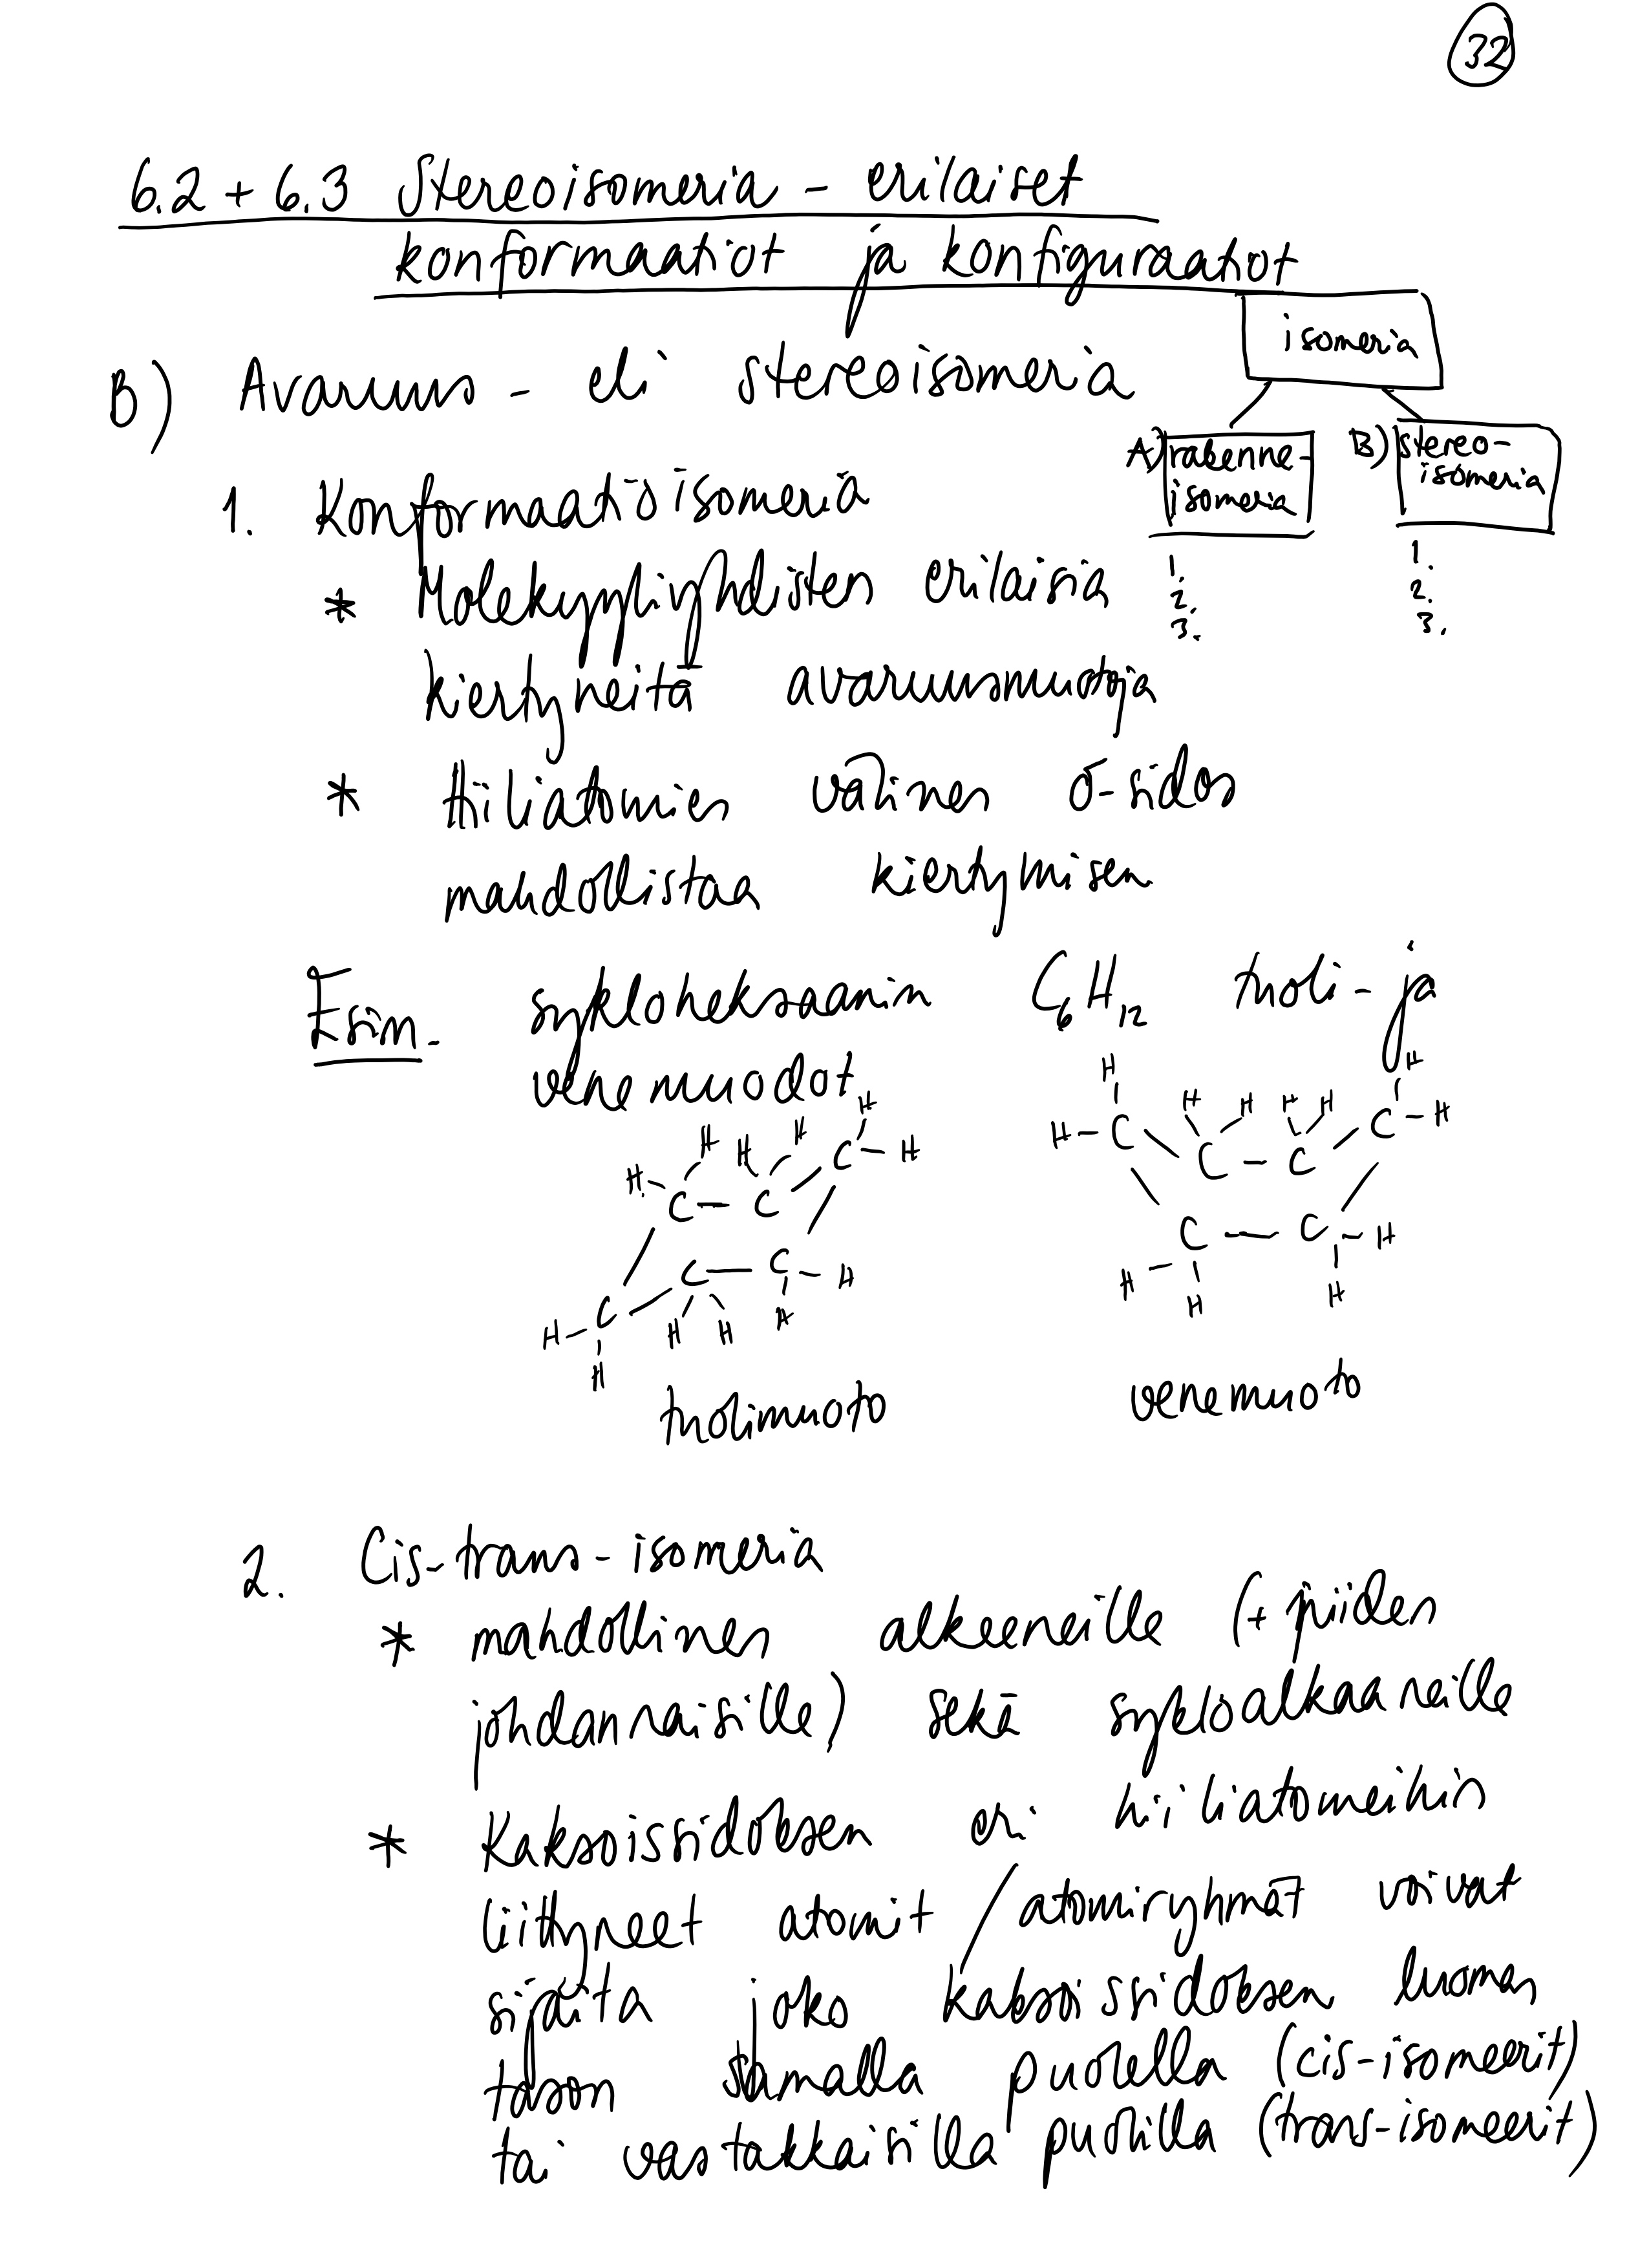 32
6.2 + 6.3 Stereoisomeria - erilaiset
konformaatiot ja konfiguraatiot
isomeria
B) Avaruus - eli stereoisomeria
A) rakenne-
isomeria
1.
2.
3.
B) stereo-
isomeria
1.
2.
3.
1. Konformaatioisomeria
* Molekyyliyhdisten erilaisia
kiertyneitä avaruusmuotoja
* Hiiliatomien välinen σ-sidos
mahdollistaa kiertymisen
Esim. sykloheksaanin C6H12 tuoli- ja
venemuodot
H H H H H H
C - C C
C C - C H
H H H H H
tuolimuoto
H H H H H H
H - C C - C C - H
C - C - H
H H H
venemuoto
2. Cis-trans-isomeria
* mahdollinen alkeeneille (+ niiden
johdannaisille) sekä sykloalkaaneille
* Kaksoissidoksen eri hiiliatomeihin
liittyneet atomit / atomiryhmät voivat
sijaita joko kaksoissidoksen luoman
tason samalla puolella (cis-isomeerit)
tai vastakkaisilla puolilla (trans-isomeerit)